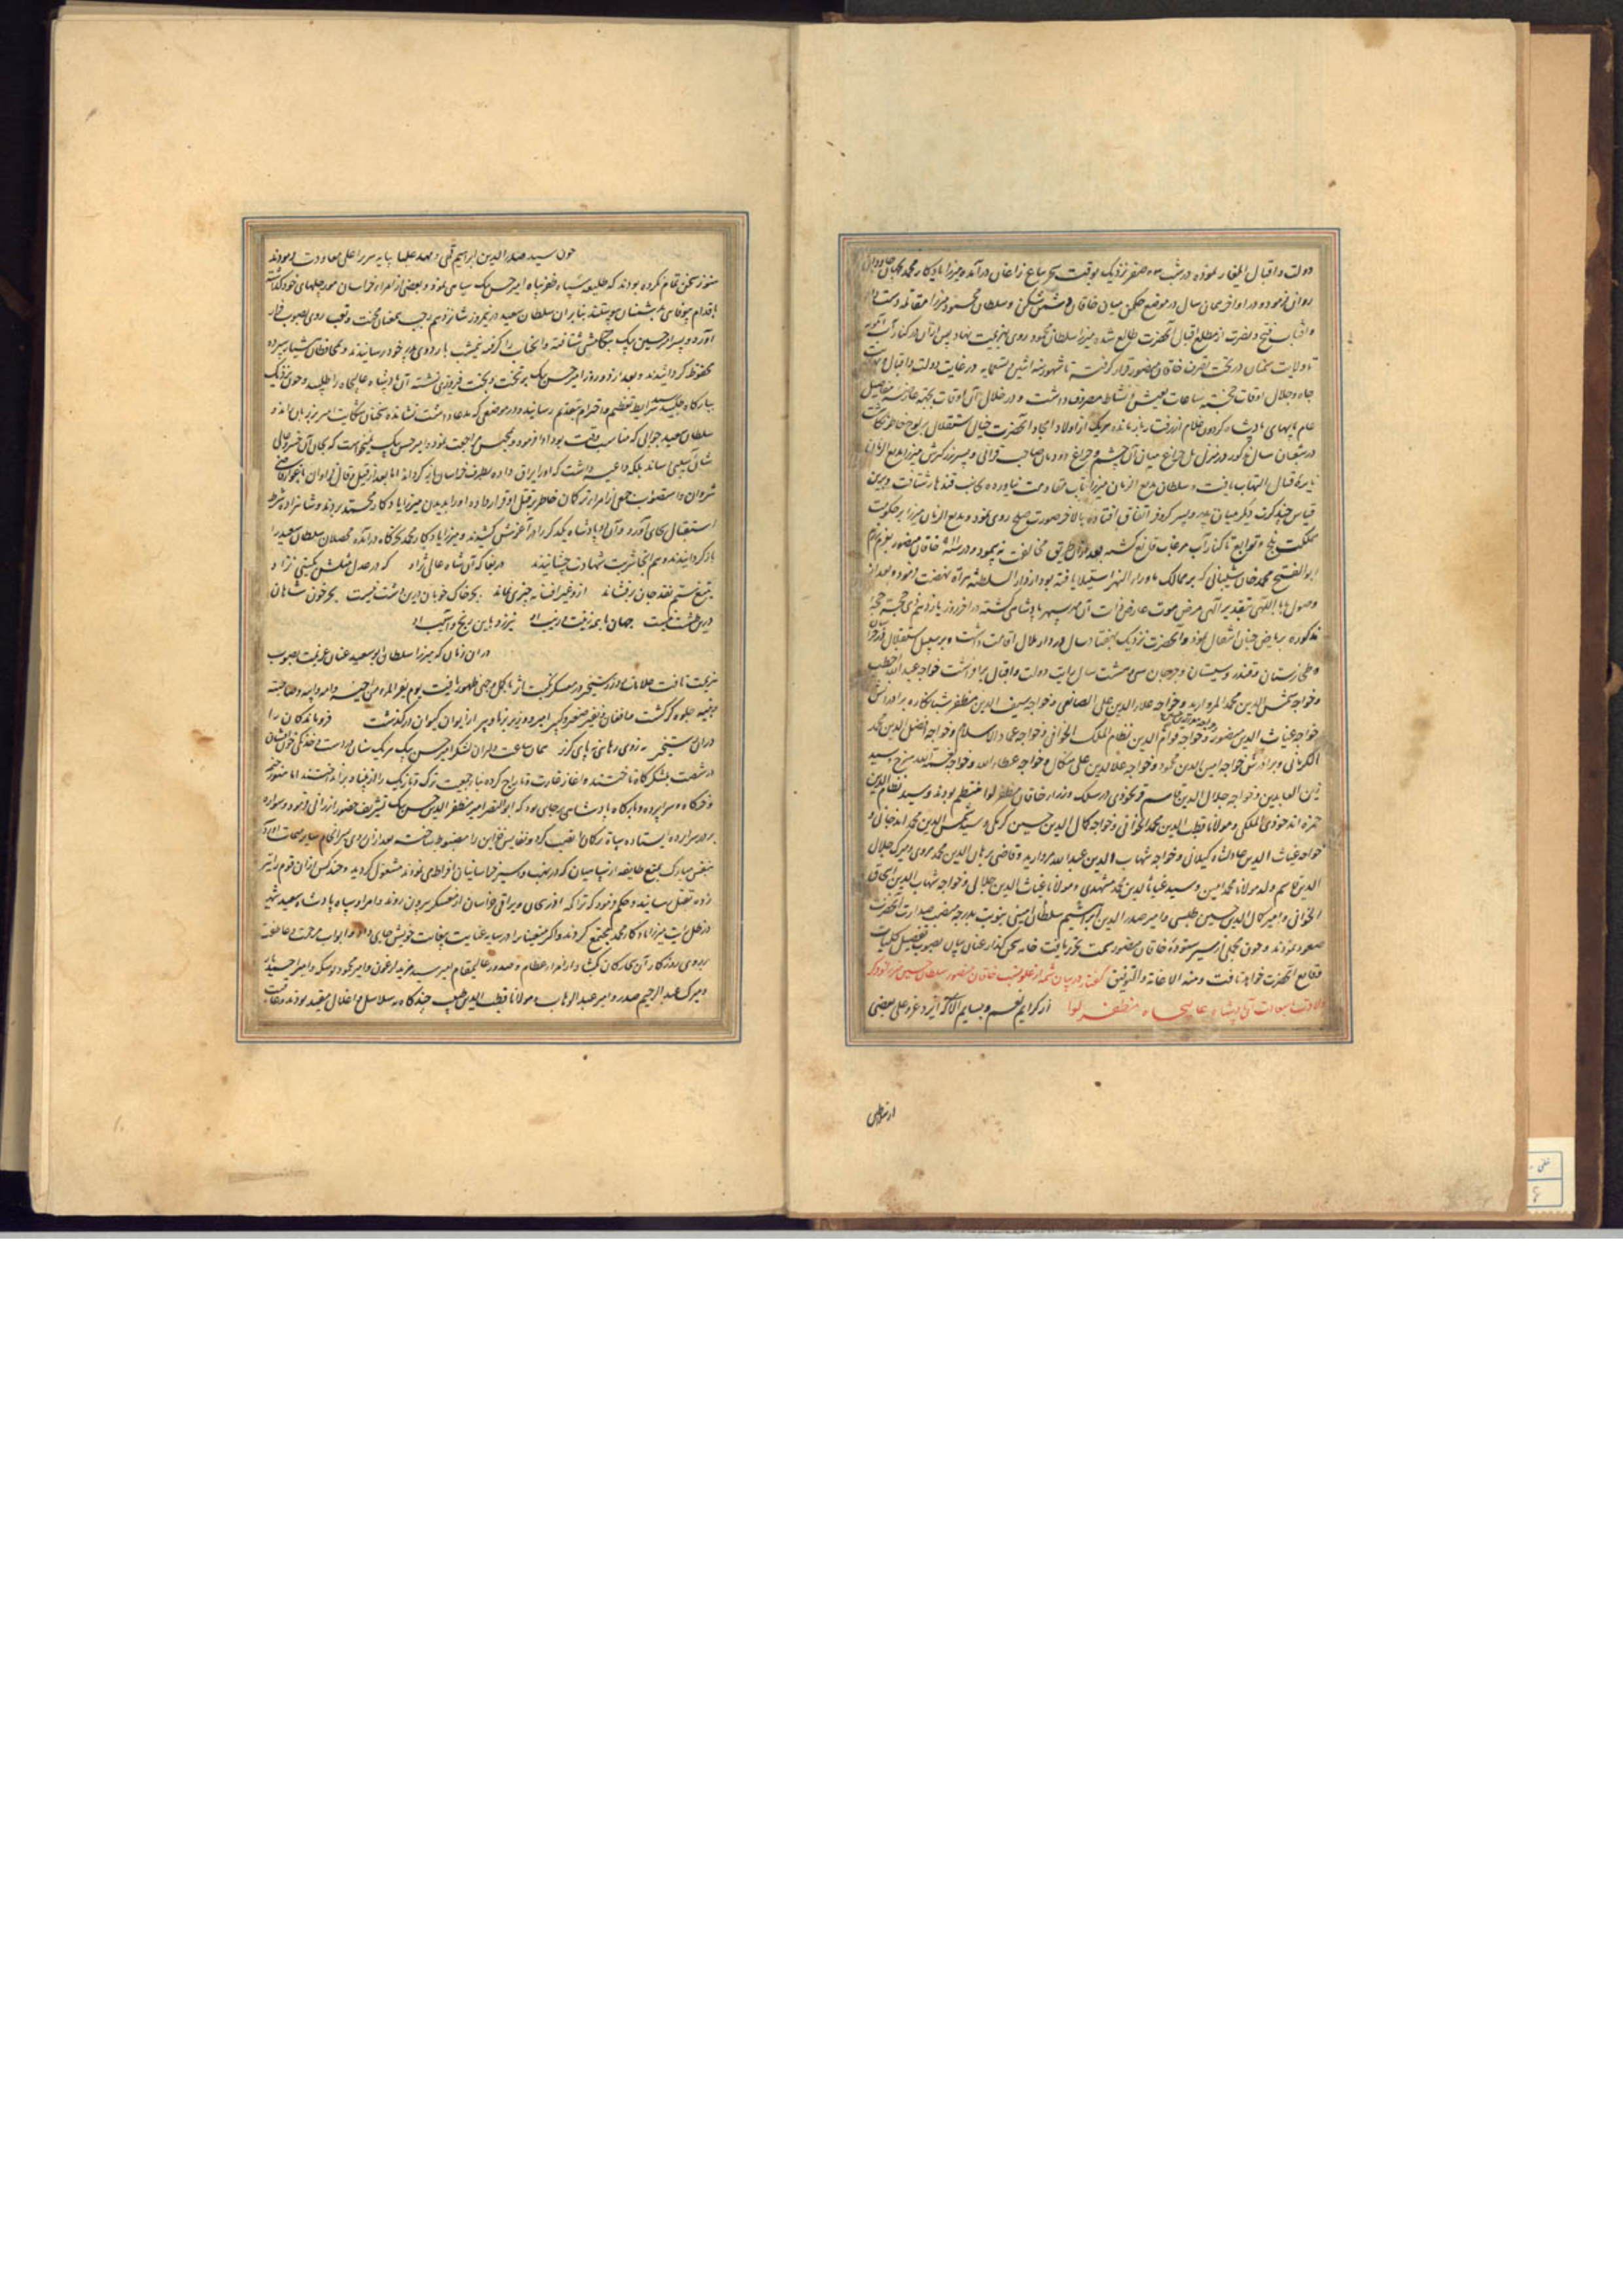 دولت و اقبال ایلغار نموده در شب سه صفر نزدیک بوقت سحر بباغ زاغان درآمده میرزا یادگار محمد بجهان جاودانی
روان فرمود و در اواخر همان سال در موضع چکمن میان خاقان و سلطان محمود میرزا مقاتله دست داد
و آفتاب فتح و نصرت از مطلع اقبال آنحضرت طالع شده میرزا سلطان محمود روی بهزیمت نهاد پس از آن از کنار آب آمویه
تا ولایت سمنان در تحت تصرف خاقان منصور قرار گرفته تا شهور سنه اثنین و تسعمایه در غایت دولت و اقبال و نهایت
جاه و جلال اوقات خجسته ساعات بعیش و نشاط مصروف داشت و در خلال آن اوقات
هر یک از اولاد امجاد آنحضرت خیال استقلال بر لوح خاطر نگاشت
در شعبان سال مذکور در منزل پل چراغ میان آن چشم و چراغ دودمان صاحب قرانی و پسر بزرگترش میرزا بدیع الزمان
نایره قتال التهاب یافت و سلطان بدیع الزمان میرزا تاب مقاومت نیاورده بجانب قندهار شتافت و برین
قیاس چند کرت دیگر میان پدر و پسر کر و فر اتفاق افتاده بالاخر صورت صلح روی نمود و بدیع الزمان میرزا بر حکومت
مملکت بلخ و توابع تا کنار آب مرغاب قانع گشته بعد از آن طریق مخالفت نه پیمود و در خاقان منصور بعزم رزم
ابو الفتح محمد خان شیبانی که بر ممالک ماوراء النهر استیلا یافته بود از دار السلطنه هراة نهضت فرمود و بعد از
وصول ببابا الهی بتقدیر الهی مرض موت عارض ذات آن مهر سپهر پادشاهی گشته در آخر روز یازدهم ذی حجه حجه
مذکوره بریاض جنان انتقال نمود و آنحضرت نزدیک بهفتاد سال در دار ملال اقامت داشت و بر سبیل استقلال در خراسان
و طخارستان و قندهار و سیستان و جرجان سی و هشت سال رایت دولت و اقبال برافراشت خواجه عبد الله اخطب
و خواجه شمس الدین محمد المروارید و خواجه علاء الدین علی الصانعی و خواجه سیف الدین مظفر شبانکاره و برادرانش
خواجه غیاث الدین منصور و خواجه قوام الدین نظام الملک الخوافی و خواجه عماد الاسلام و خواجه افضل الدین محمد
الکرمانی و برادرش خواجه امین الدین محمود و خواجه علاء الدین علی میکال و خواجه عطاء الله و خواجه نعمت الله سرخ و سید
زین العابدین و خواجه جلال الدین قاسم فرنخودی در سلک وزراء خاقان مظفر لوا منتظم بودند و سید نظام الدین
حمزه اندخودی الملکی و مولانا قطب الدین محمد الخوافی و خواجه کمال الدین حسین کرنکی و سید شمس الدین محمد اندخانی و
خواجه غیاث الدین عادلشاه کیلانی و خواجه شهاب الدین عبد الله مروارید و قاضی برهان الدین محمد مروی و میرک جلال
الدین قاسم ولد مولانا محمد امین و سید غیاث الدین محمد مشهدی و مولانا غیاث الدین جلالی و خواجه شهاب الدین اسحاق
الخوافی و امیر کمال الدین حسین طبسی و امیر صدر الدین ابراهیم سلطان امینی بنوبت بدرجه منصب صدارت آنحضرت
صعود نمودند و چون مجملی از سیر ستوده خاقان منصور سمت تحریر یافت خامه سخن گذار عنان بیان بصوب تفصیل کلیات
وقایع آنحضرت خواهد تافت و منه الاعانة و التوفیق گفتار در بیان شمه از علو نسب خاقان منصور سلطان حسین میرزا و ذکر
ولادت با سعادت آن پادشاه عالیجاه مظفر لوا از کرایم نعم و جسایم آلاء که ایزد عز و علی بعضی
از خواص
چون سید صدر الدین ابراهیم قمی و مهد علیا بپایه سریر اعلی معاودت فرمودند
هنوز سخن تمام نکرده بودند که طلیعه سپاه ظفر پناه امیر حسن بیک سیاهی نمود و بعضی از امراء خراسان مورچلهای خود گذاشته
باقدام بیوفایی بدشمنان پیوستند بنابران سلطان سعید در نیمروز شانزدهم رجب بمعنان محنت و تعب روی بصوب فرار
آورد و پسر امیر حسین بیک شتافته و آنجناب را گرفته نیمشب باردوی پدر خود رسانیدند و بمحافظان هشیار سپرده
محفوظ گردانیدند و بعد از دو روز امیر حسن بیک بر تخت و بخت فیروزی نشسته آن پادشاه عالیجاه را طلبید و چون نزدیک
ببارگاه رسید شرایط تعظیم و احترام بتقدیم رسانید و در موضعی که مدعا داشت نشانده سخنان شکایت آمیز بر زبان راند و
سلطان سعید جوابی که مناسب وقت بود ادا فرمود و مجلس مراجعت نمود و امیر حسن بیک نمیخواست که بجان آن خسرو عالی
شان آسیبی رساند بلکه داعیه داشت که او را یراق داده بطرف خراسان باز گرداند اما بعد از قیل و قال فراوان باغوای قاضی
شروان و استصواب جمعی از امراء ترکمان خاطر بر قتل او قرار داده او را بدیدن میرزا یادگار محمد بردند و شاهزاده شرط
استقبال بجای آورد و آن دو پادشاه یکدیگر را در آغوش کشیدند و میرزا یادگار محمد بخرگاه درآمده محصلان سلطان سعید را
بازگردانیدند و هم آنجا شربت شهادت چشانیدند دریغا که آن شاه عالی نژاد که در عدل مثلش بگیتی نزاد
بتیغ ستم نقد جان برفشاند ازو غیر افسانه چیزی نماند بجز خاک خوبان درین دشت نیست بجز خون شاهان
درین طشت نیست جهان با همه زینت و زیب او نیرزد باین رنج و آسیب او
در آن زمان که میرزا سلطان ابو سعید عنان عزیمت بصوب
هزیمت تافت علامات روز رستخیز در معسکر بکل وجهی ظهور یافت یوم یفر المرء من اخیه و امه و ابیه و صاحبته
و بنیه جلوه گر گشت و افغان و نفیر صغیر و کبیر امیر و وزیر برنا و پیر از ایوان کیوان درگذشت فروماندگان را
در آن رستخیز نه زوی رهائی نه پای گریز همان ساعت دلیران لشکر امیر حسن بیک هر یک سنانی در دست و خدنگی خون افشان
در شصت بلشکرگاه تاختند و آغاز غارت و تاراج کرده بنای جمعیت ترک و تازیک را از بنیاد برانداختند اما هنوز خیمه
و خرگاه و سراپرده و بارگاه پادشاهی بر جای بود که ابو النصر امیر مظفر الدین حسن بیک تشریف حضور ارزانی فرمود و سواره
بر در سراپرده ایستاده نفایس خزاین را مضبوط ساخت بعد از آن روی بسرانجام سایر مهمات آورده
بنفس مبارک بمنع طایفه از سپاهیان که در نهب و سیز خراسانیان افراط می نمودند مشغول گردید و چند کس از آن قوم را تیر
زده بقتل رسانید و حکم فرمود که تراکمه آذربیجان و یراقی خراسان از معسکر بیرون روند و امراء و سپاه پادشاه سعید شهید
در ظل رایت میرزا یادگار محمد مجتمع گردند و اکثر متعینان را در سایه عنایت بیغایت خویش جای داد و ابواب مرحمت و عاطفت
بر روی روزگار آن بیچارگان بگشاد از امراء عظام و صدور عالیمقام امیر سید مزید ارغون و امیر محمود برمکه و امیر احمد
و میرک عبد الرحیم صدر و امیر عبد الوهاب و مولانا قطب الدین طبیب چندگاه به سلاسل و اغلال مقید بودند و عاقبت